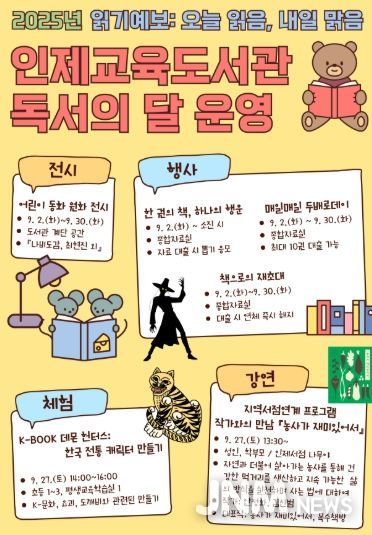 2025년 읽기예보: 오늘 읽음, 내일 맑음
인제교육도서관
독서의 달 운영
전시
어린이 동화 원화 전시
9. 2.(화)~9. 30.(화)
도서관 계단 공간
『나비도감, 최현진 외』
행사
한 권의 책, 하나의 행운
9. 2.(화) ~ 소진 시
종합자료실
자료 대출 시 뽑기 응모
매일매일 두배로데이
9. 2.(화) ~ 9. 30.(화)
종합자료실
최대 10권 대출 가능
책으로의 재초대
9. 2.(화)~9. 30.(화)
종합자료실
대출 시 연체 즉시 해지
체험
K-BOOK 데몬 헌터스:
한국 전통 캐릭터 만들기
9. 27.(토) 14:00~16:00
초등 1~3, 평생교육학습실 1
K-문화, 요괴, 도깨비와 관련된 만들기
강연
지역서점연계 프로그램
작가와의 만남 『농사가 재미있어서』
9. 27.(토) 13:30~
성인, 학부모 / 인제서점 나무야
자연과 더불어 살아가는 농사를 통해 건
강한 먹거리를 생산하고 지속 가능한 삶
의 방식 실천하며 사는 법에 대하여
대표작: 농사가 재미있어서, 옥수책방